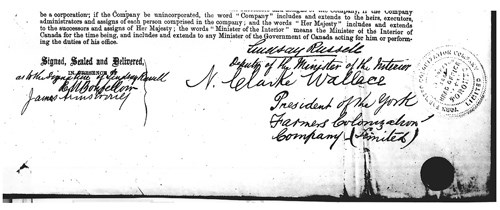 be a corporation; if the Company be unincorporated, the word "Company" includes and extends to the heirs, executors,
administrators and assigns of each person comprised in the company; and the words "Her Majesty" includes and extends
to the successors and assigns of Her Majesty; the words "Minister of the Interior" means the Minister of the Interior of
Canada for the time being, and includes and extends to any Minister of the Government of Canada acting for him or perform-
ing the duties of his office.
Signed, Sealed and Delivered,
IN PRESENCE OF
as to the signature of Lindsay Russell
James Armstrong
Lindsay Russell
Deputy of the Minister of the Interior
N. Clarke Wallace
President of the York
Farmers Colonization
Company (Limited)